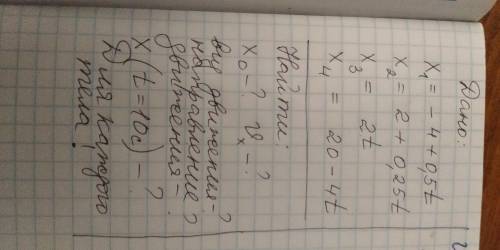 Дано:
x₁ = - 4 + 0,5t
x₂ = 2 + 0,25t
x₃ = 2t
x₄ = 20 - 4t
Найти:
x₀ - ? vₓ - ?
вид движения - ?
направление
движения - ?
x (t = 10с) - ?
Для каждого
тела.